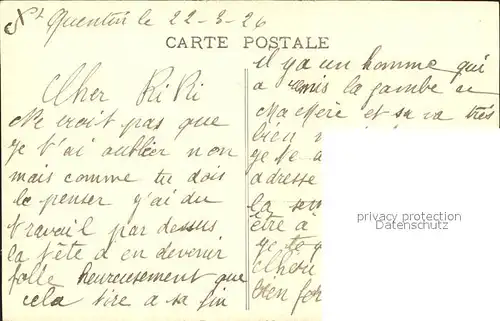 St Quentin le 22-3-26
CARTE POSTALE
Cher RiRi
Ne croit pas que
je t'ai oublier non
mais comme tu dois
le penser j'ai du
travail par dessus
la tête a en devenir
folle heureusement que
cela tire a sa fin
il y a un homme qui
a remis la jambe de
Ma Mère et sa va très
bien
je te
adresse
la
être à
je te
bien for
privacy protection
Datenschutz